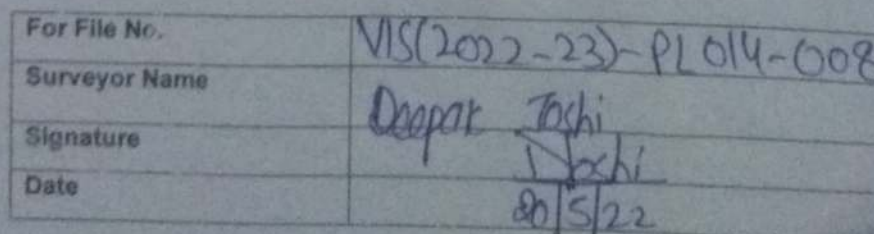 For File No. VIS(2022-23)-PL014-008
Surveyor Name Deepak Joshi
Signature Joshi
Date 20/5/22